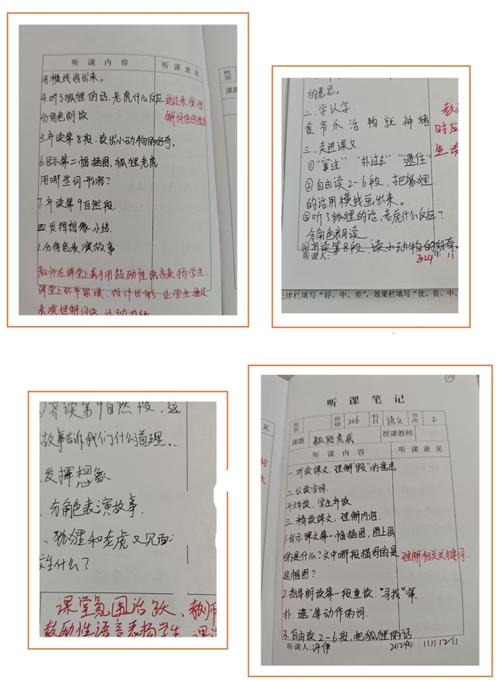 听课内容
听课意见
用横线画出来。
4.听了狐狸的话,老虎什么反应
分角色朗读
5.齐读第8段,读出小动物的好奇。
6.出示第二幅插图,狐狸老虎
用哪些词形容?
7.齐读第9自然段
四 发挥想像,小结
1.分角色表演故事
教师在课堂上善于用鼓励性语言表扬学生,
的意思。
二.学认字
食爷爪治物就神猪
三.走进课文
①“窜过”“扑过去”“逮住”
②自由读2-6段,把狐狸
的话用横线画出来。
③听了狐狸的话,老虎什么反应?
分角色朗读
④齐读第8段 读小动物的好奇。
听课人:
2024年11
律栏填写“好、中、差”,效果栏填写“优、良、中、
齐读第9自然段,这
故事告诉我们什么道理。
发挥想象
分角色表演故事
狐狸和老虎又见面
生什么?
课堂氛围活跃、教师
鼓励性语言表扬学生
听课笔记
班级
206
科目
语文
节次
2
课题
狐假虎威
授课教师
听课内容
听课意见
一.听读课文,理解“假”的意思
二.认读字词
三.精读课文,理解内容。
1.出示课文第一幅插图,图上画
的是什么?文中哪段描写的是
这幅图?
理解相关关键词
2.指导朗读第一段重读“寻找”“窜
扑.逮”等动作的词.
3.自由读2-6段,把狐狸的话
听课人:
2024年11月12日